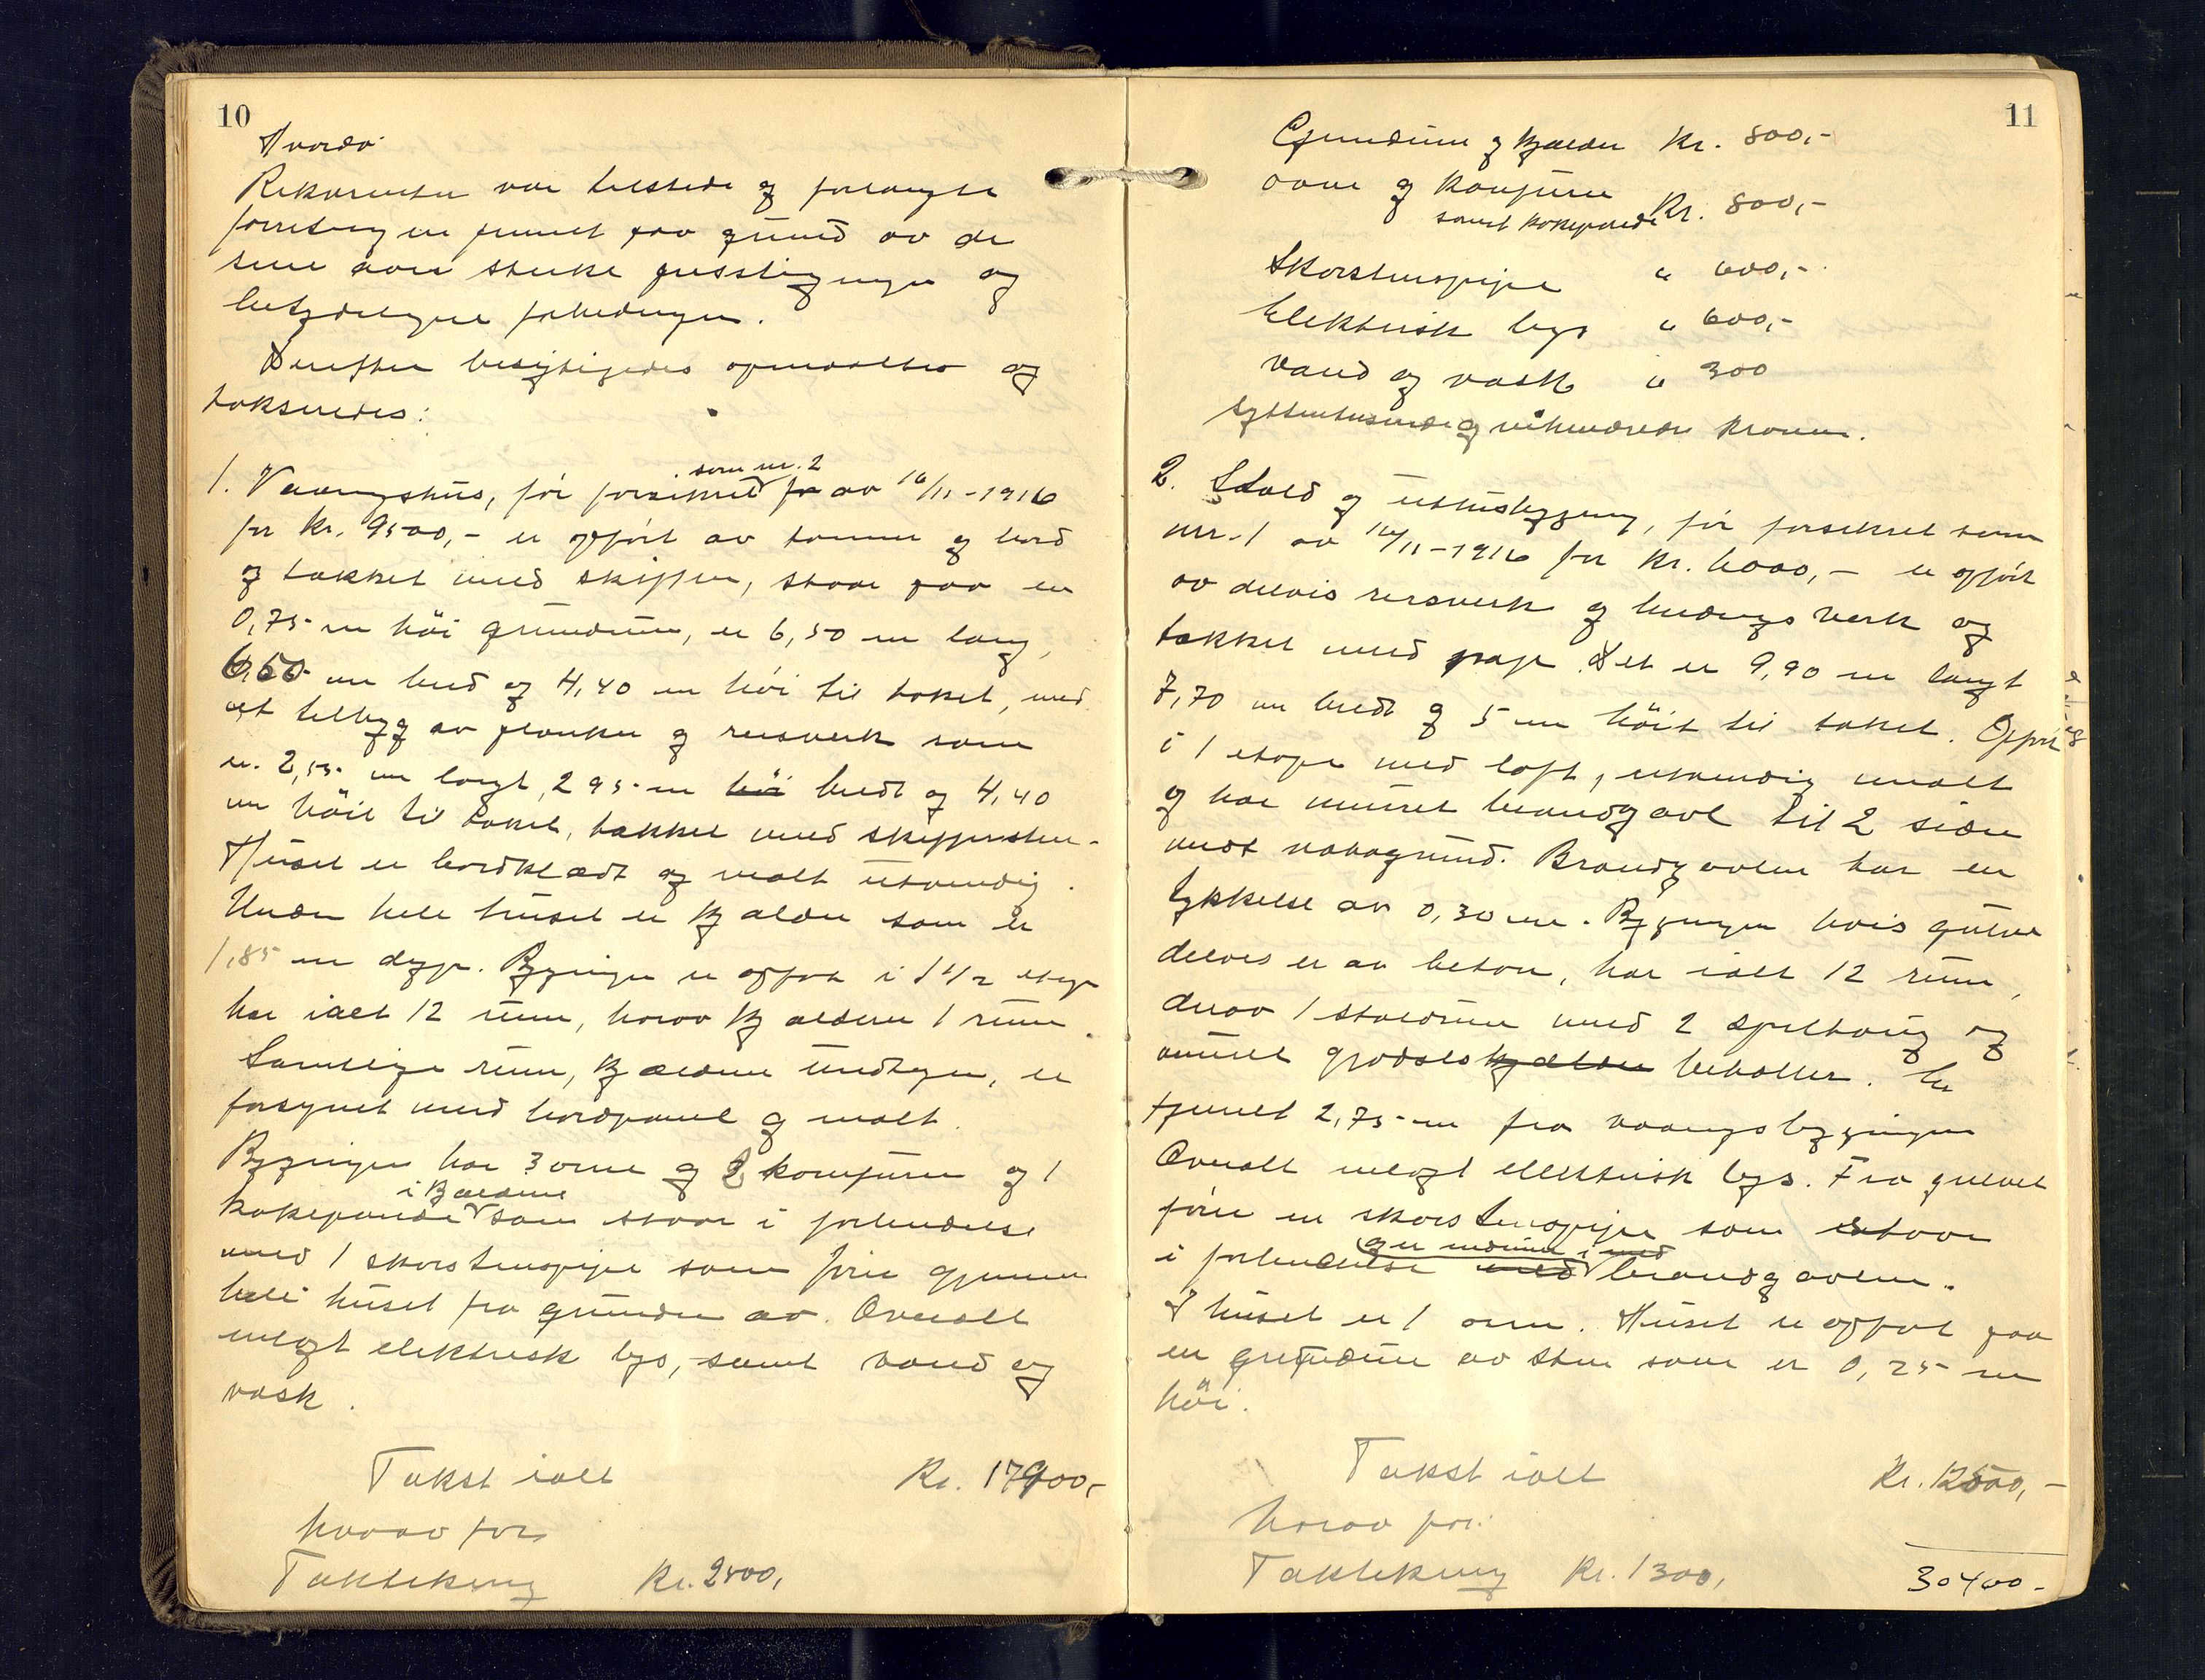 10
Hvorda
Rekvirenten var tilstede og forlangte
forretningen fremet paa grund av de
sene aars sterke prisstigninger og
betydelige forbedringer.
Derefter besigtigedes opmaaltes og
takseredes:
1. Vaaningshus, før forsikret som nr. 2 av 16/11-1916
for kr. 9500,- er opført av tømmer og bord
og takket med skiffer, staar paa en
0,75 m höi grundmur, er 6,50 m lang,
6,50 m bred og 4,40 m höi til taket, med
et tilbygg av planker og reisverk som
er 2,55 m langt, 2 95 m höi bredt og 4,40
m höit til taket, takket med skiffersten.
Huset er bordklædt og malt utvendig.
Under hele huset er kjælder som er
1,85 m dyp. Bygningen er opført i 1 1/2 etage
har ialt 12 rum, hvorav kjælderen 1 rum.
Samtlige rum, kjælderen undtagen, er
forsynet med bordpanel og malt.
Bygningen har 3 ovne og 2 komfurer og 1
kokepande i kjælderen som staar i forbindelse
med 1 skorstenspipe som fører gjennem
hele huset fra grunden av. Overalt
inlagt elektrisk lys, samt vand og
vask.
Takst ialt Kr. 17900,-
hvorav for
Taktekning Kr. 2500,
11
Grundmur og kjælder Kr. 800,-
ovne og komfurer
samt kokepande Kr. 800,-
Skorstenspipe " 600,-
Elektrisk lys " 600,-
Vand og vask " 300
syttentusindeognihundrede kroner.
2. Stald og uthusbygning, før forsikret som
nr. 1 av 16/11-1916 for kr. 6000,- er opført
av delvis reisverk og bindingsverk og
takket med pap. Det er 9,90 m langt
7,70 m bredt og 5 m höit til taket. Opført
i 1 etage med loft, utvendig malt
og har muret brandgavl til 2 sider
mot nabogrund. Brandgavlen har en
tykkelse av 0,30 m. Bygningen hvis gulve
delvis er av beton, har ialt 12 rum,
derav 1 staldrum med 2 spiltaug og
muret gjødselskjælder beholder. Er
fjernet 2,75 m fra vaaningsbygningen
Overalt inlagt elektrisk lys. Fra gulvet
fører en skorstenspipe som staar
i forbindelse med og er indmuret i med brandgavlen.
I huset er 1 ovn. Huset er opført paa
en grundmur av sten som er 0,25 m
höi.
Takst ialt Kr. 12500,-
hvorav for:
Taktekning Kr. 1300,
30400-